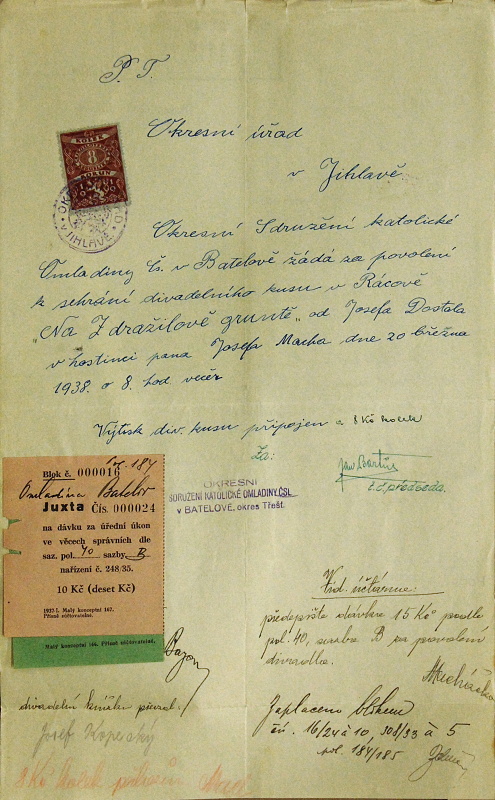 P. T.
Okresní úřad
v Jihlavě.
KOLEK
8
KORUN
V JIHLAVĚ
Okresní Sdružení katolické
Omladiny Čs. v Batelově žádá za povolení
k sehrání divadelního kusu v Rácově
„Na Zdražilově gruntě" od Josefa Dostala
v hostinci pana Josefa Macha dne 20 března
1938 o 8. hod. večer
Výtisk div. kusu připojen a 8 Kč kolek
Za:
Jan Bartůs
t.č. předseda.
OKRESNÍ
SDRUŽENÍ KATOLICKÉ OMLADINY ČSL.
v BATELOVĚ, okres Třešť.
pol. 184
Blok č. 000016
Omladina Batelov
Juxta Čís. 000024
na dávku za úřední úkon
ve věcech správních dle
saz. pol. 40 sazby B
nařízení č. 248/35.
10 Kč (deset Kč)
1937-I. Malý konceptní 167.
Přísně zúčtovatelné.
Malý konceptní 168. Přísně zúčtovatelné.
Zdr. účtárna:
předepište dávku 15 Kč podle
pol. 40, sazba B za povolení
divadla.
Zaplaceno blokem
čís. 16/24 á 10, 308/33 á 5
pol. 184/185
divadelní knihu převzal:
Josef Kopecký
8 Kč kolek